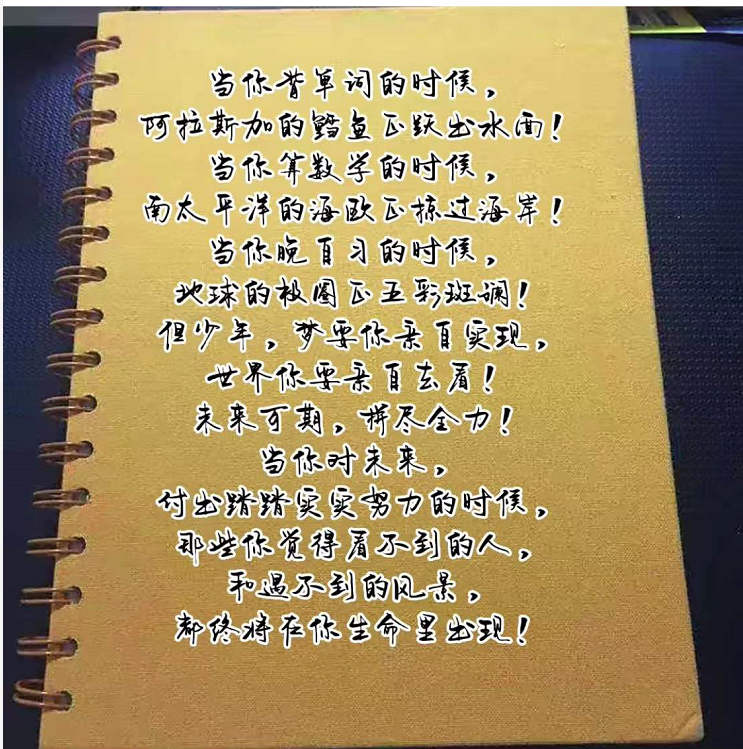 当你背单词的时候,
阿拉斯加的鳕鱼正跃出水面!
当你算数学的时候,
南太平洋的海欧正掠过海岸!
当你晚自习的时候,
地球的极圈正五彩斑斓!
但少年,梦要你亲自实现,
世界你要亲自去看!
未来可期,拼尽全力!
当你对未来,
付出踏踏实实努力的时候,
那些你觉得看不到的人,
和遇不到的风景,
都终将在你生命里出现!